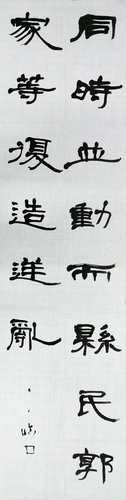 同時並動而縣民郭
家等復造逆亂